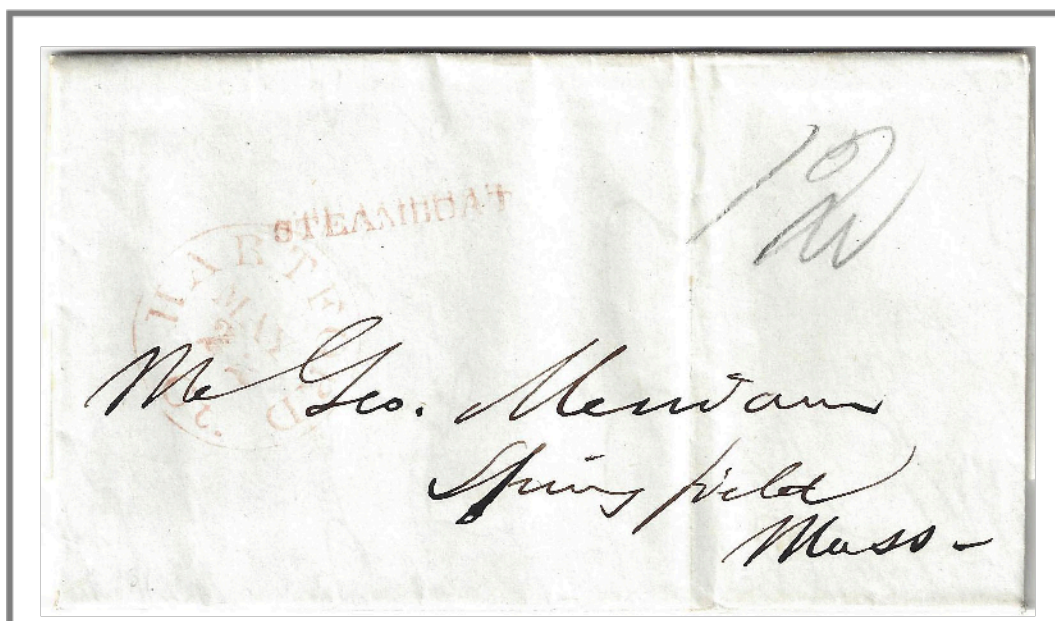 STEAMBOAT
HARTFORD
MAY
Mr Geo. Merriam
Springfield
Mass -